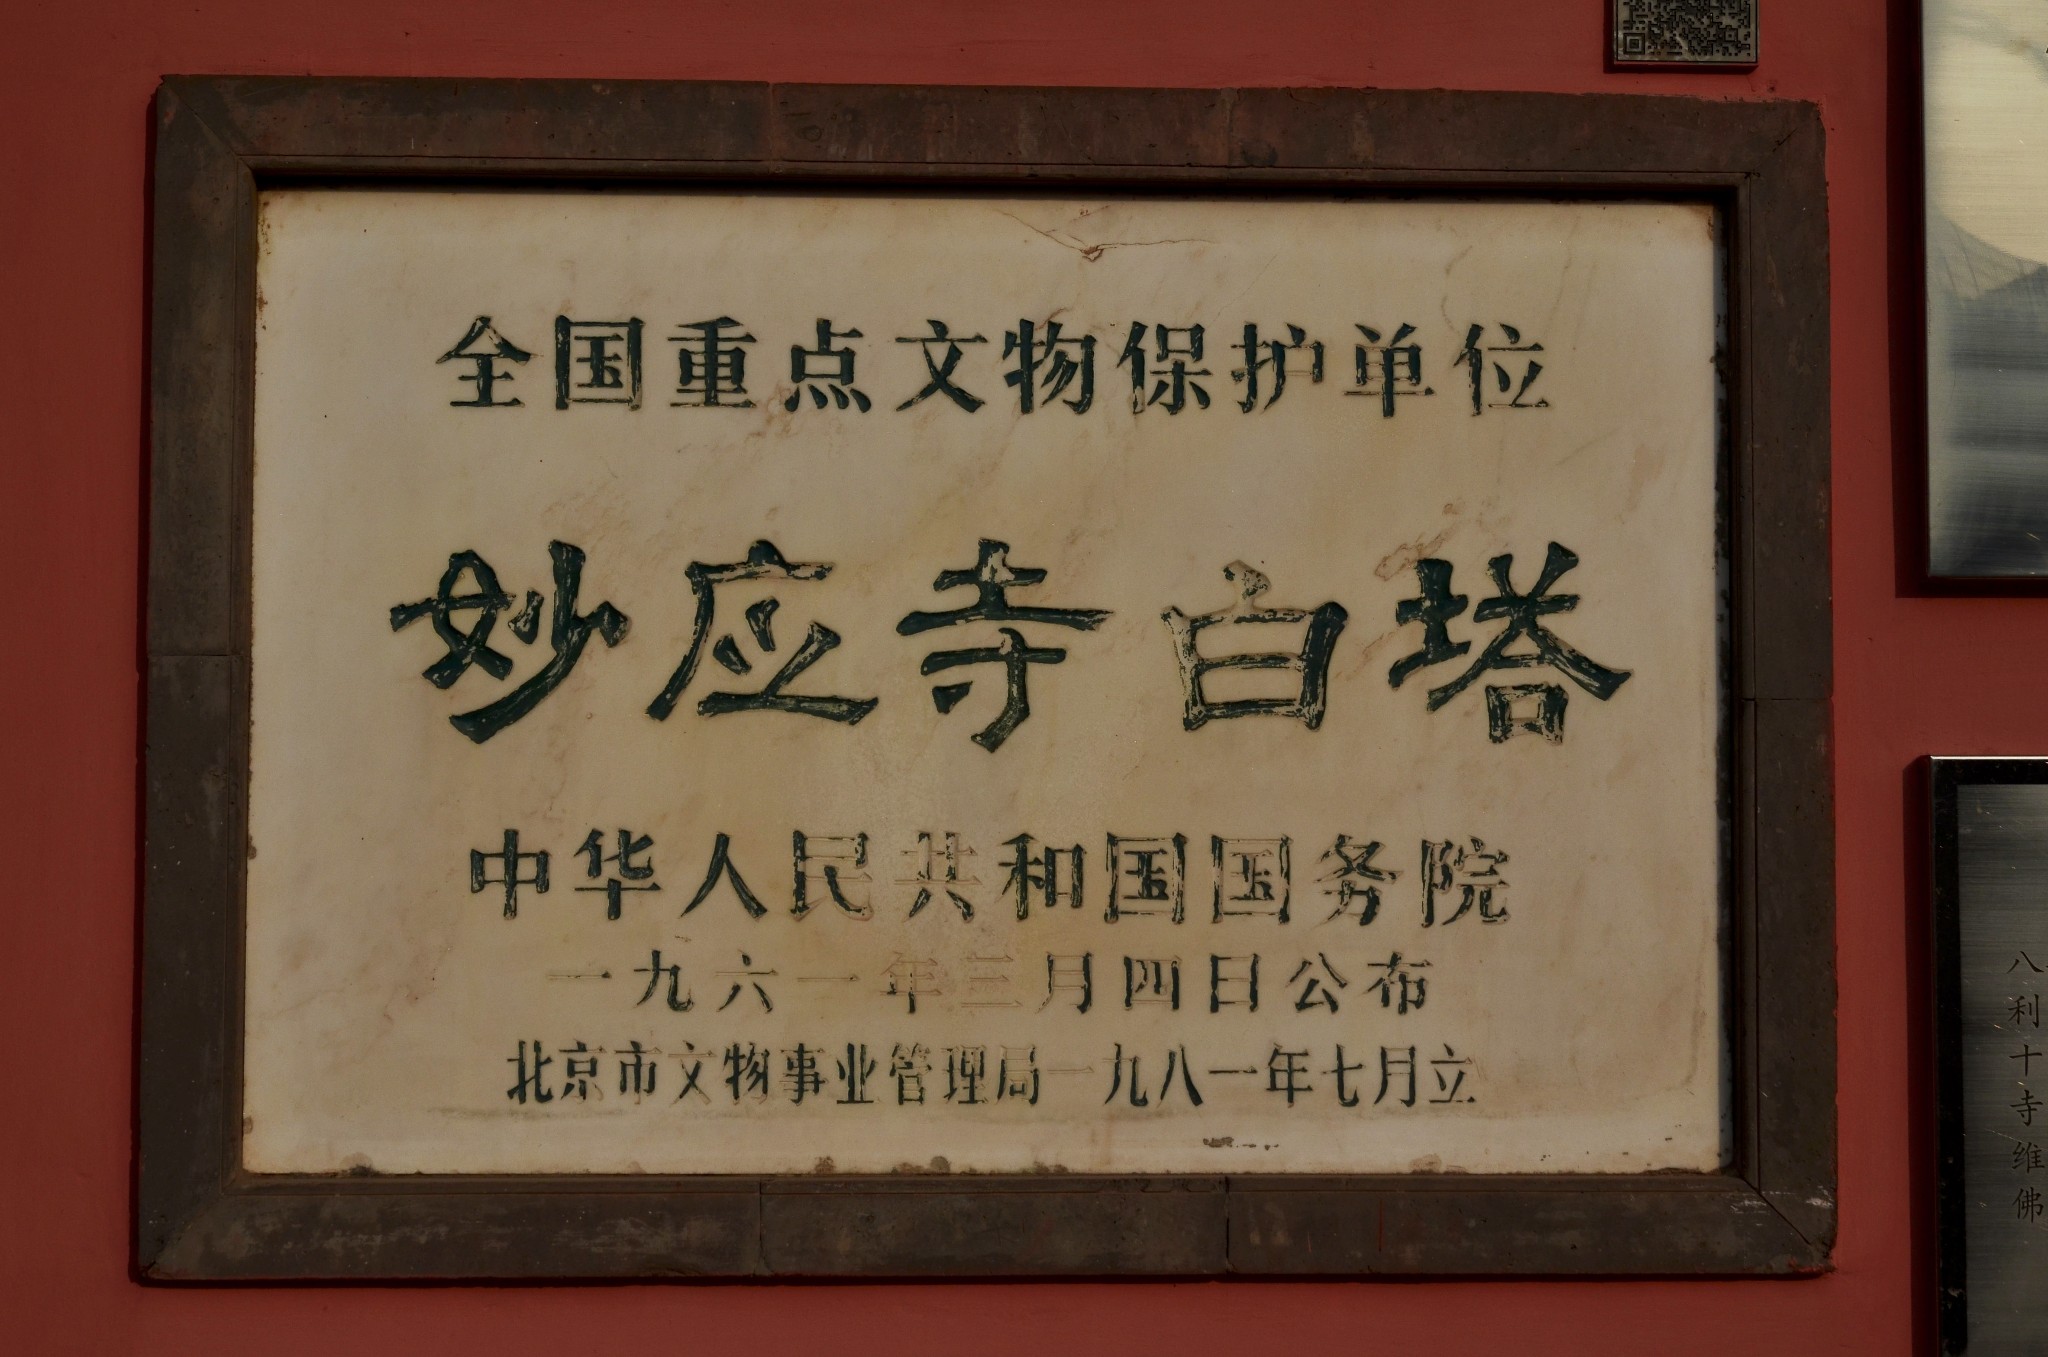 全国重点文物保护单位
妙应寺白塔
中华人民共和国国务院
一九六一年三月四日公布
北京市文物事业管理局一九八一年七月立
八利十寺维佛